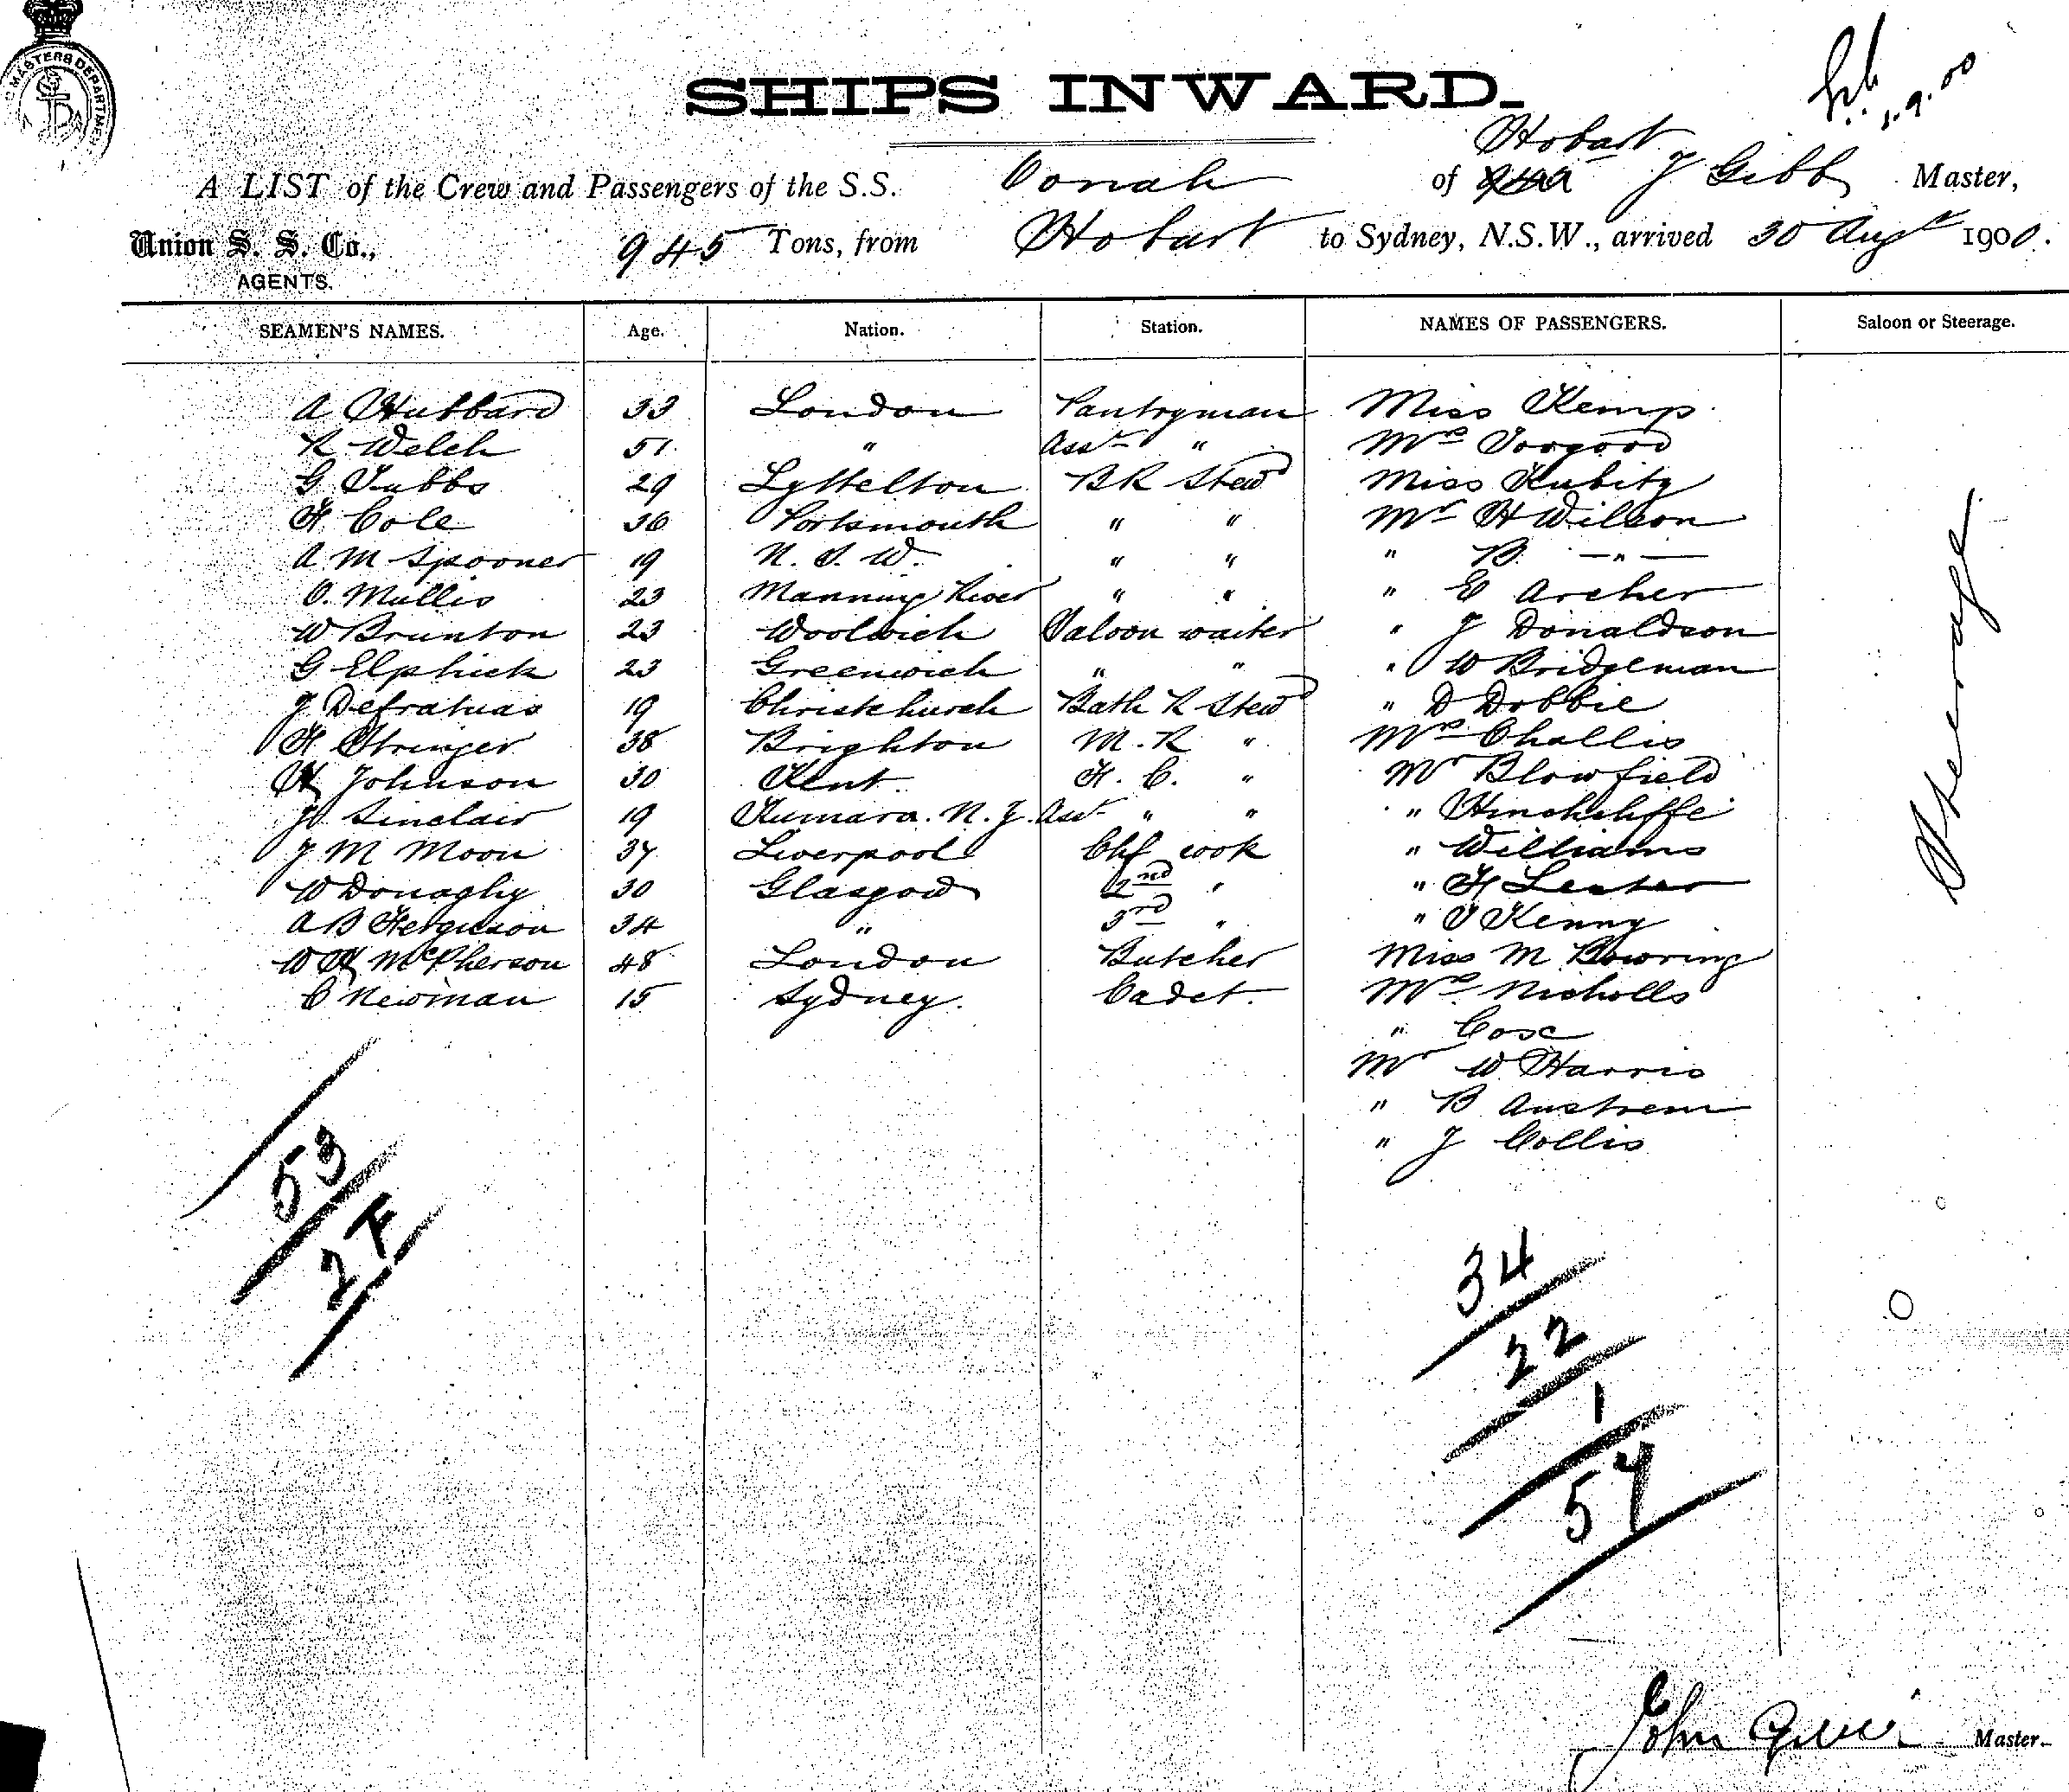 MASTERS DEPARTMENT
SHIPS INWARD.
1.9.00
Hobart
A LIST of the Crew and Passengers of the S.S. Oonah of J Gibb Master,
Union S. S. Co., 945 Tons, from Hobart to Sydney, N.S.W., arrived 30 Augt 1900.
AGENTS.
SEAMEN'S NAMES. Age. Nation. Station. NAMES OF PASSENGERS. Saloon or Steerage.
A Hubbard 33 London Pantryman Miss Kemp
R Welch 51 " Asst " Mrs Toogood
G Tubbs 29 Lyttelton BR Stewd Miss Kubitz
F Cole 36 Portsmouth " " Mr H Wilson
A. M Spooner 19 N. S. W. " " " B. —"—
O. Mullis 23 Manning River " " " E Archer
W Brunton 23 Woolwich Saloon waiter " J Donaldson
G Elphick 23 Greenwich " " " W Bridgeman
J Defratuas 19 Christchurch Bath R Stewd " D Dobbie
F Stringer 38 Brighton M. R " Mrs Challis
H Johnson 30 Kent F. C. " Mr Blowfield
Sinclair 19 Kumara. N. Z. Asst " " " Hinchcliffe
J M Moon 37 Liverpool Chf cook " Williams
W Donaghy 30 Glasgow 2nd " " F Lester
A B Ferguson 34 " 3rd " " T Kenny
W H McPherson 48 London Butcher Miss M Bowring
C Newman 15 Sydney. Cadet. Mrs Nicholls
" Cox
Mr W Harris
" B Anstrem
" J Collis
Steerage
53
2 F
34
22
1
57
John Master